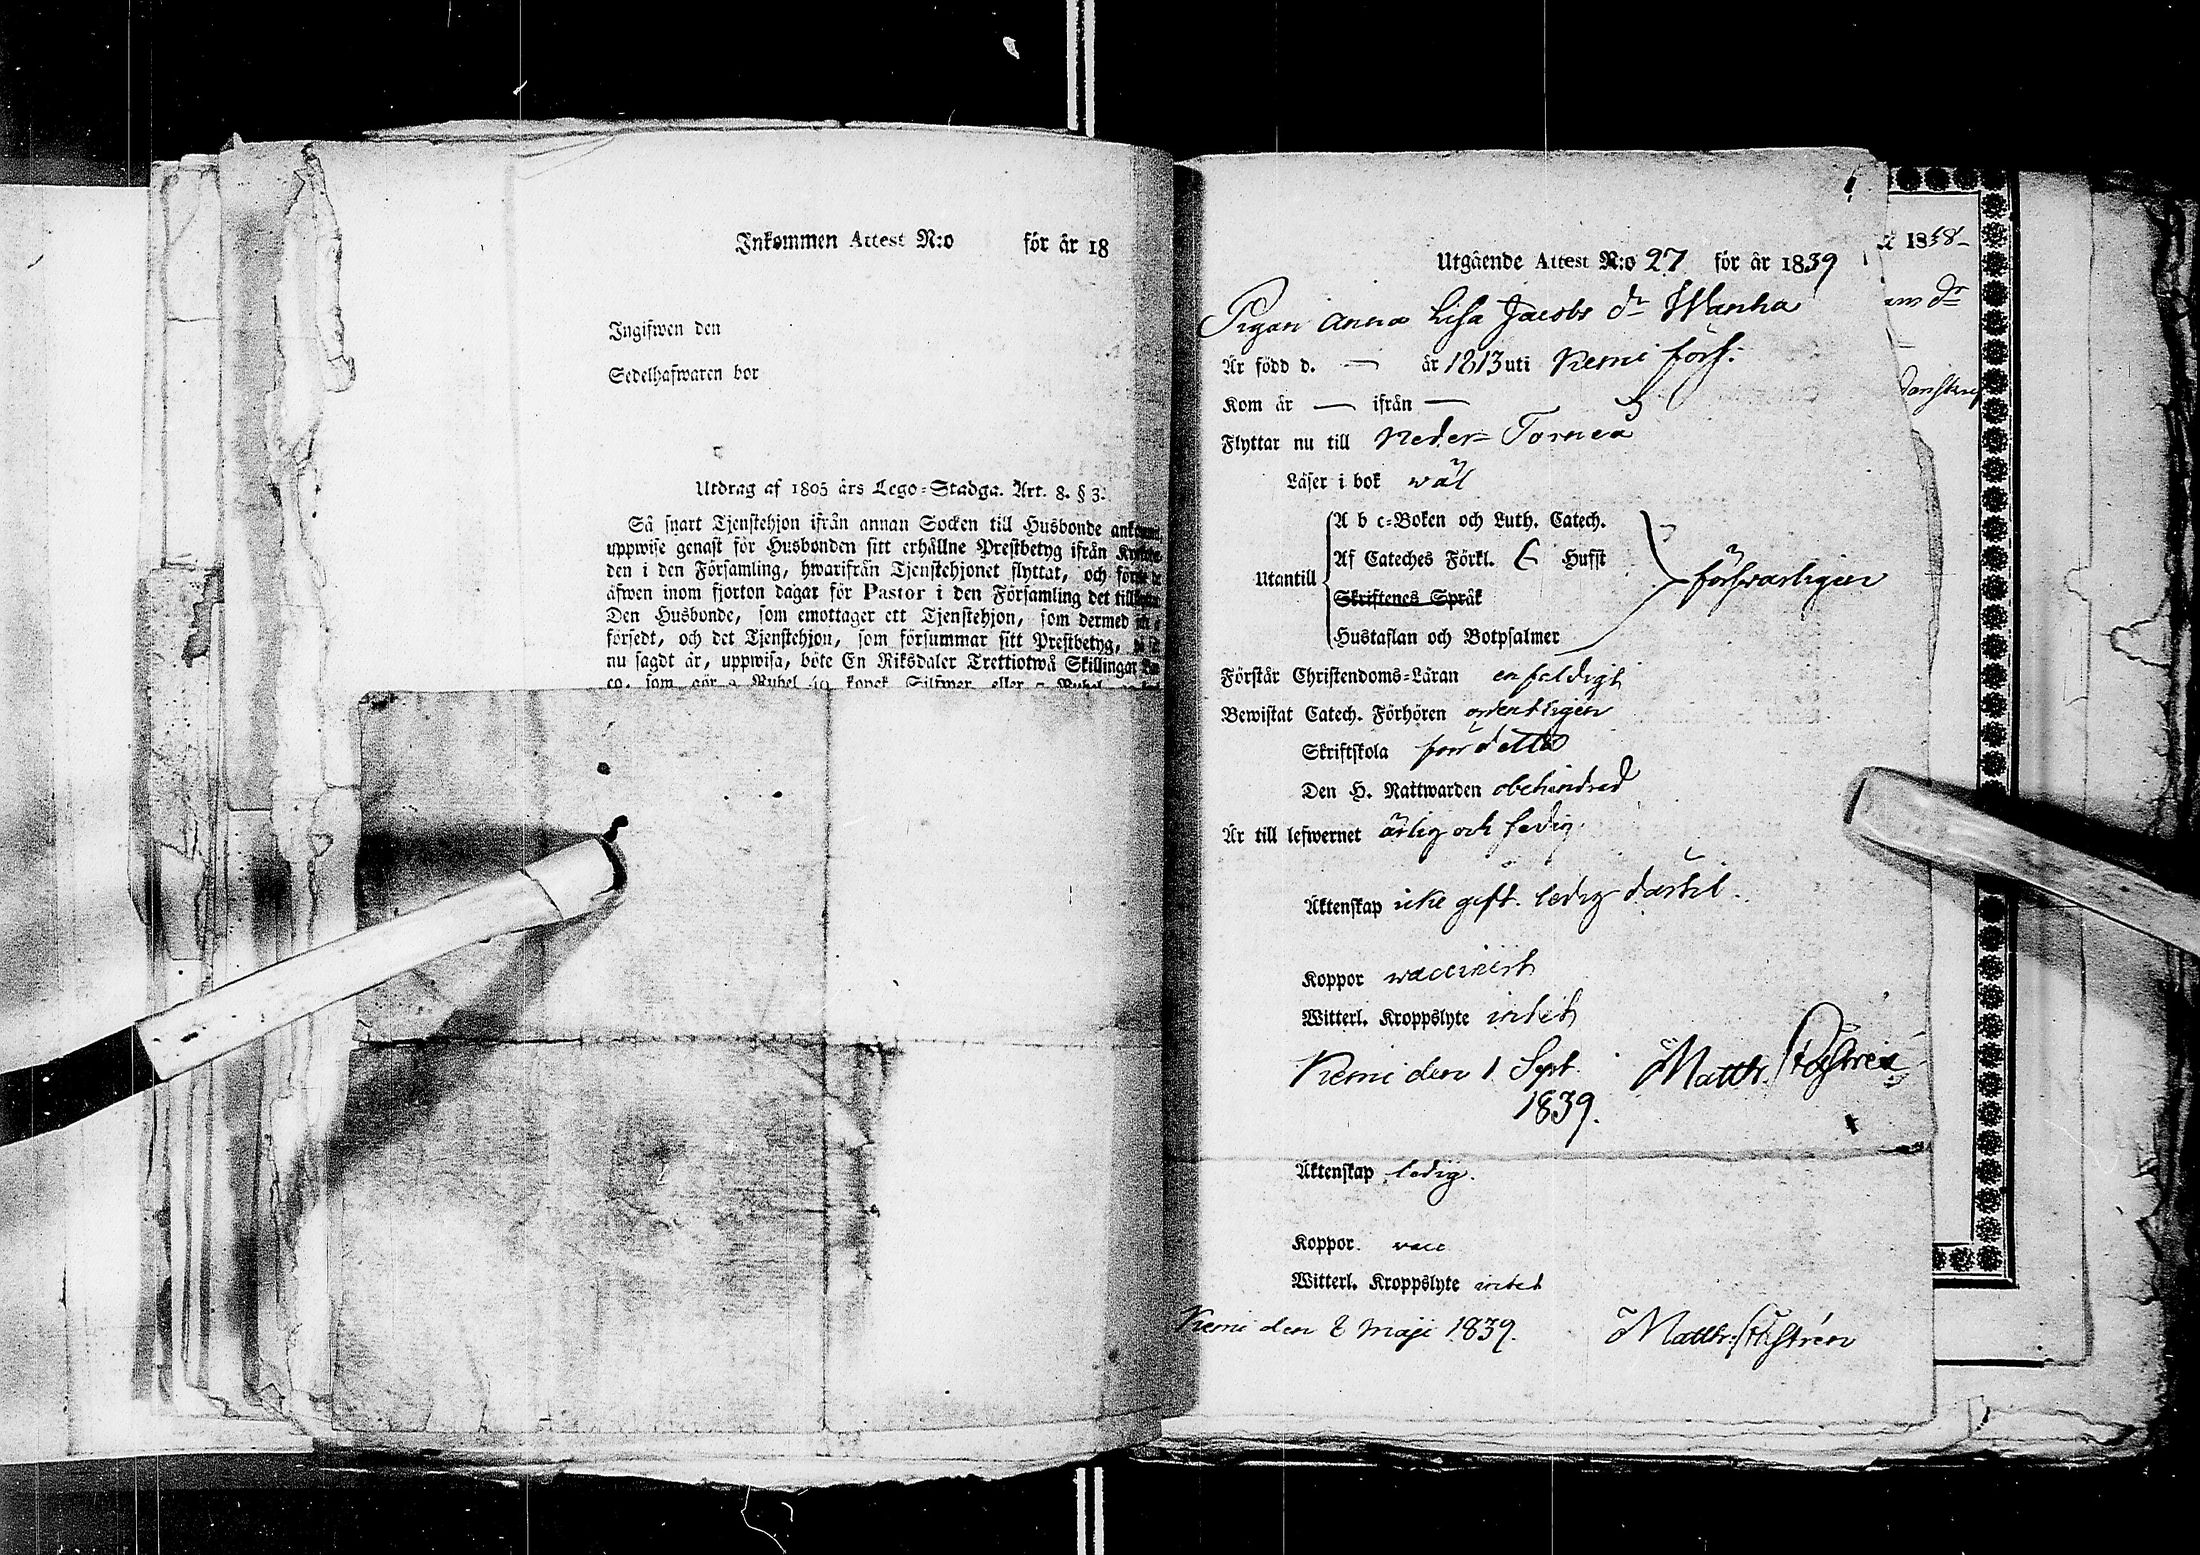 Inkommen Attest N:o för år 18
Ingifwen den
Sedelhafwaren bor
Utdrag af 1805 års Lego-Stadga. Art. 8. § 3.
Så snart Tjenstehjon ifrån annan Socken till Husbonde
uppwise genast för Husbonden sitt erhållne Prestbetyg ifrån
den i den Församling, hwarifrån Tjenstehjonet flyttat, och
äfwen inom fjorton dagar för Pastor i den Församling det
Den Husbonde, som emottager ett Tjenstehjon, som dermed
försedt, och det Tjenstehjon, som försummar sitt Prestbetyg,
nu sagdt är, uppwisa, böte En Riksdaler Trettiotwå Skillingar
co, som gör 2 Rubel 40 kopek Silfwer, eller 7 Rubel
Utgående Attest N:o 27 för år 1839
Pigan Anna Lisa Jacobs dr Wanha
Är född d. — år 1813 uti Kemi förs.
Kom år — ifrån —
Flyttar nu till Neder-Torneå
Läser i bok wäl
Utantill
A b c-Boken och Luth. Catech.
Af Cateches Förkl. Hufst
Skriftenes Språk
Hustaflan och Botpsalmer
försvarligen
Förstår Christendoms-Läran enfaldigt
Bewistat Catech. Förhören ordentligen
Skriftskola för detta
Den H. Nattwarden obehindrad
Är till lefwernet ärlig och ledig
Äktenskap icke gift. ledig dartil.
Koppor waccinerd
Witterl. Kroppslyte intet
Kemi den 1 Sept. Matth.
1839.
Äktenskap ledig.
Koppor. vacc
Witterl. Kroppslyte intet
Kemi den 8 Maji 1839. Matth.
1838
dr